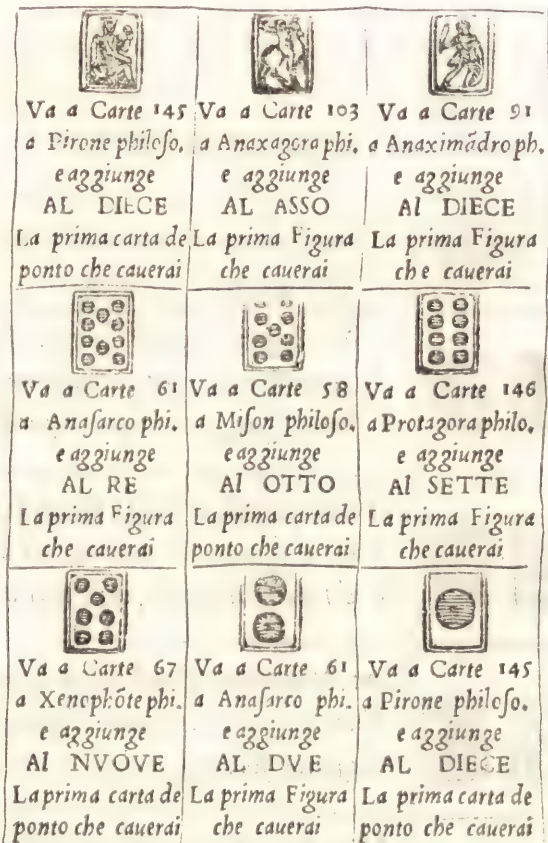 Va a Carte 145
a Pirone philoſo.
e aggiunge
AL DIECE
La prima carta de
ponto che cauerai
Va a Carte 103
a Anaxagora phi.
e aggiunge
AL ASSO
La prima Figura
che cauerai
Va a Carte 91
a Anaximãdro ph.
e aggiunge
Al DIECE
La prima Figura
che cauerai
Va a Carte 61
a Anaſarco phi.
e aggiunge
AL RE
La prima Figura
che cauerai
Va a Carte 58
a Miſon philoſo.
e aggiunge
Al OTTO
La prima carta de
ponto che cauerai
Va a Carte 146
a Protagora philo.
e aggiunge
Al SETTE
La prima Figura
che cauerai
Va a Carte 67
a Xenophõte phi.
e aggiunge
Al NVOVE
La prima carta de
ponto che cauerai
Va a Carte 61
a Anaſarco phi.
e aggiunge
AL DVE
La prima Figura
che cauerai
Va a Carte 145
a Pirone philoſo.
e aggiunge
AL DIECE
La prima carta de
ponto che cauerai